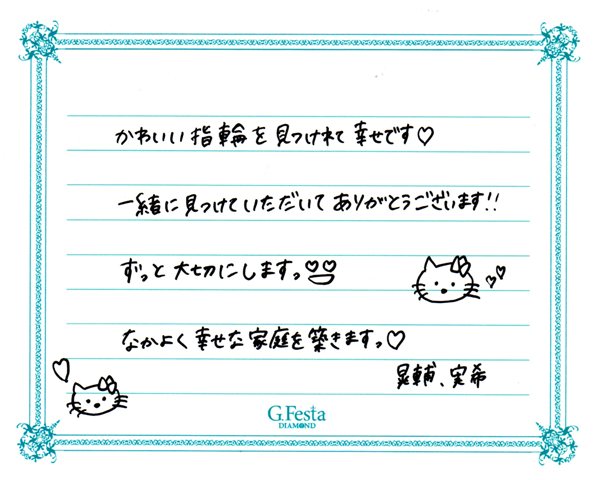 かわいい指輪を見つけれて幸せです♡
一緒に見つけていただいてありがとうございます!!
ずっと大切にしますっ
なかよく幸せな家庭を築きますっ♡
晃輔、実希
G.Festa
DIAMOND